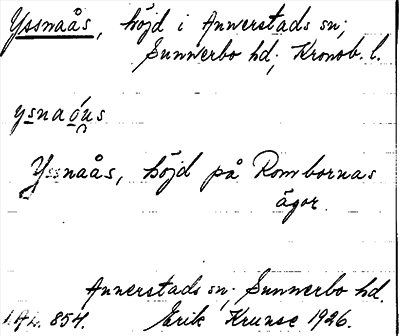 Yssnaås, höjd i Annerstads sn;
Sunnerbo hd; Kronob. l.
ysnaó̜us
Yssnaås, höjd på Rombornas
ägor.
Annerstads sn; Sunnerbo hd.
854. Erik Krunse 1926.